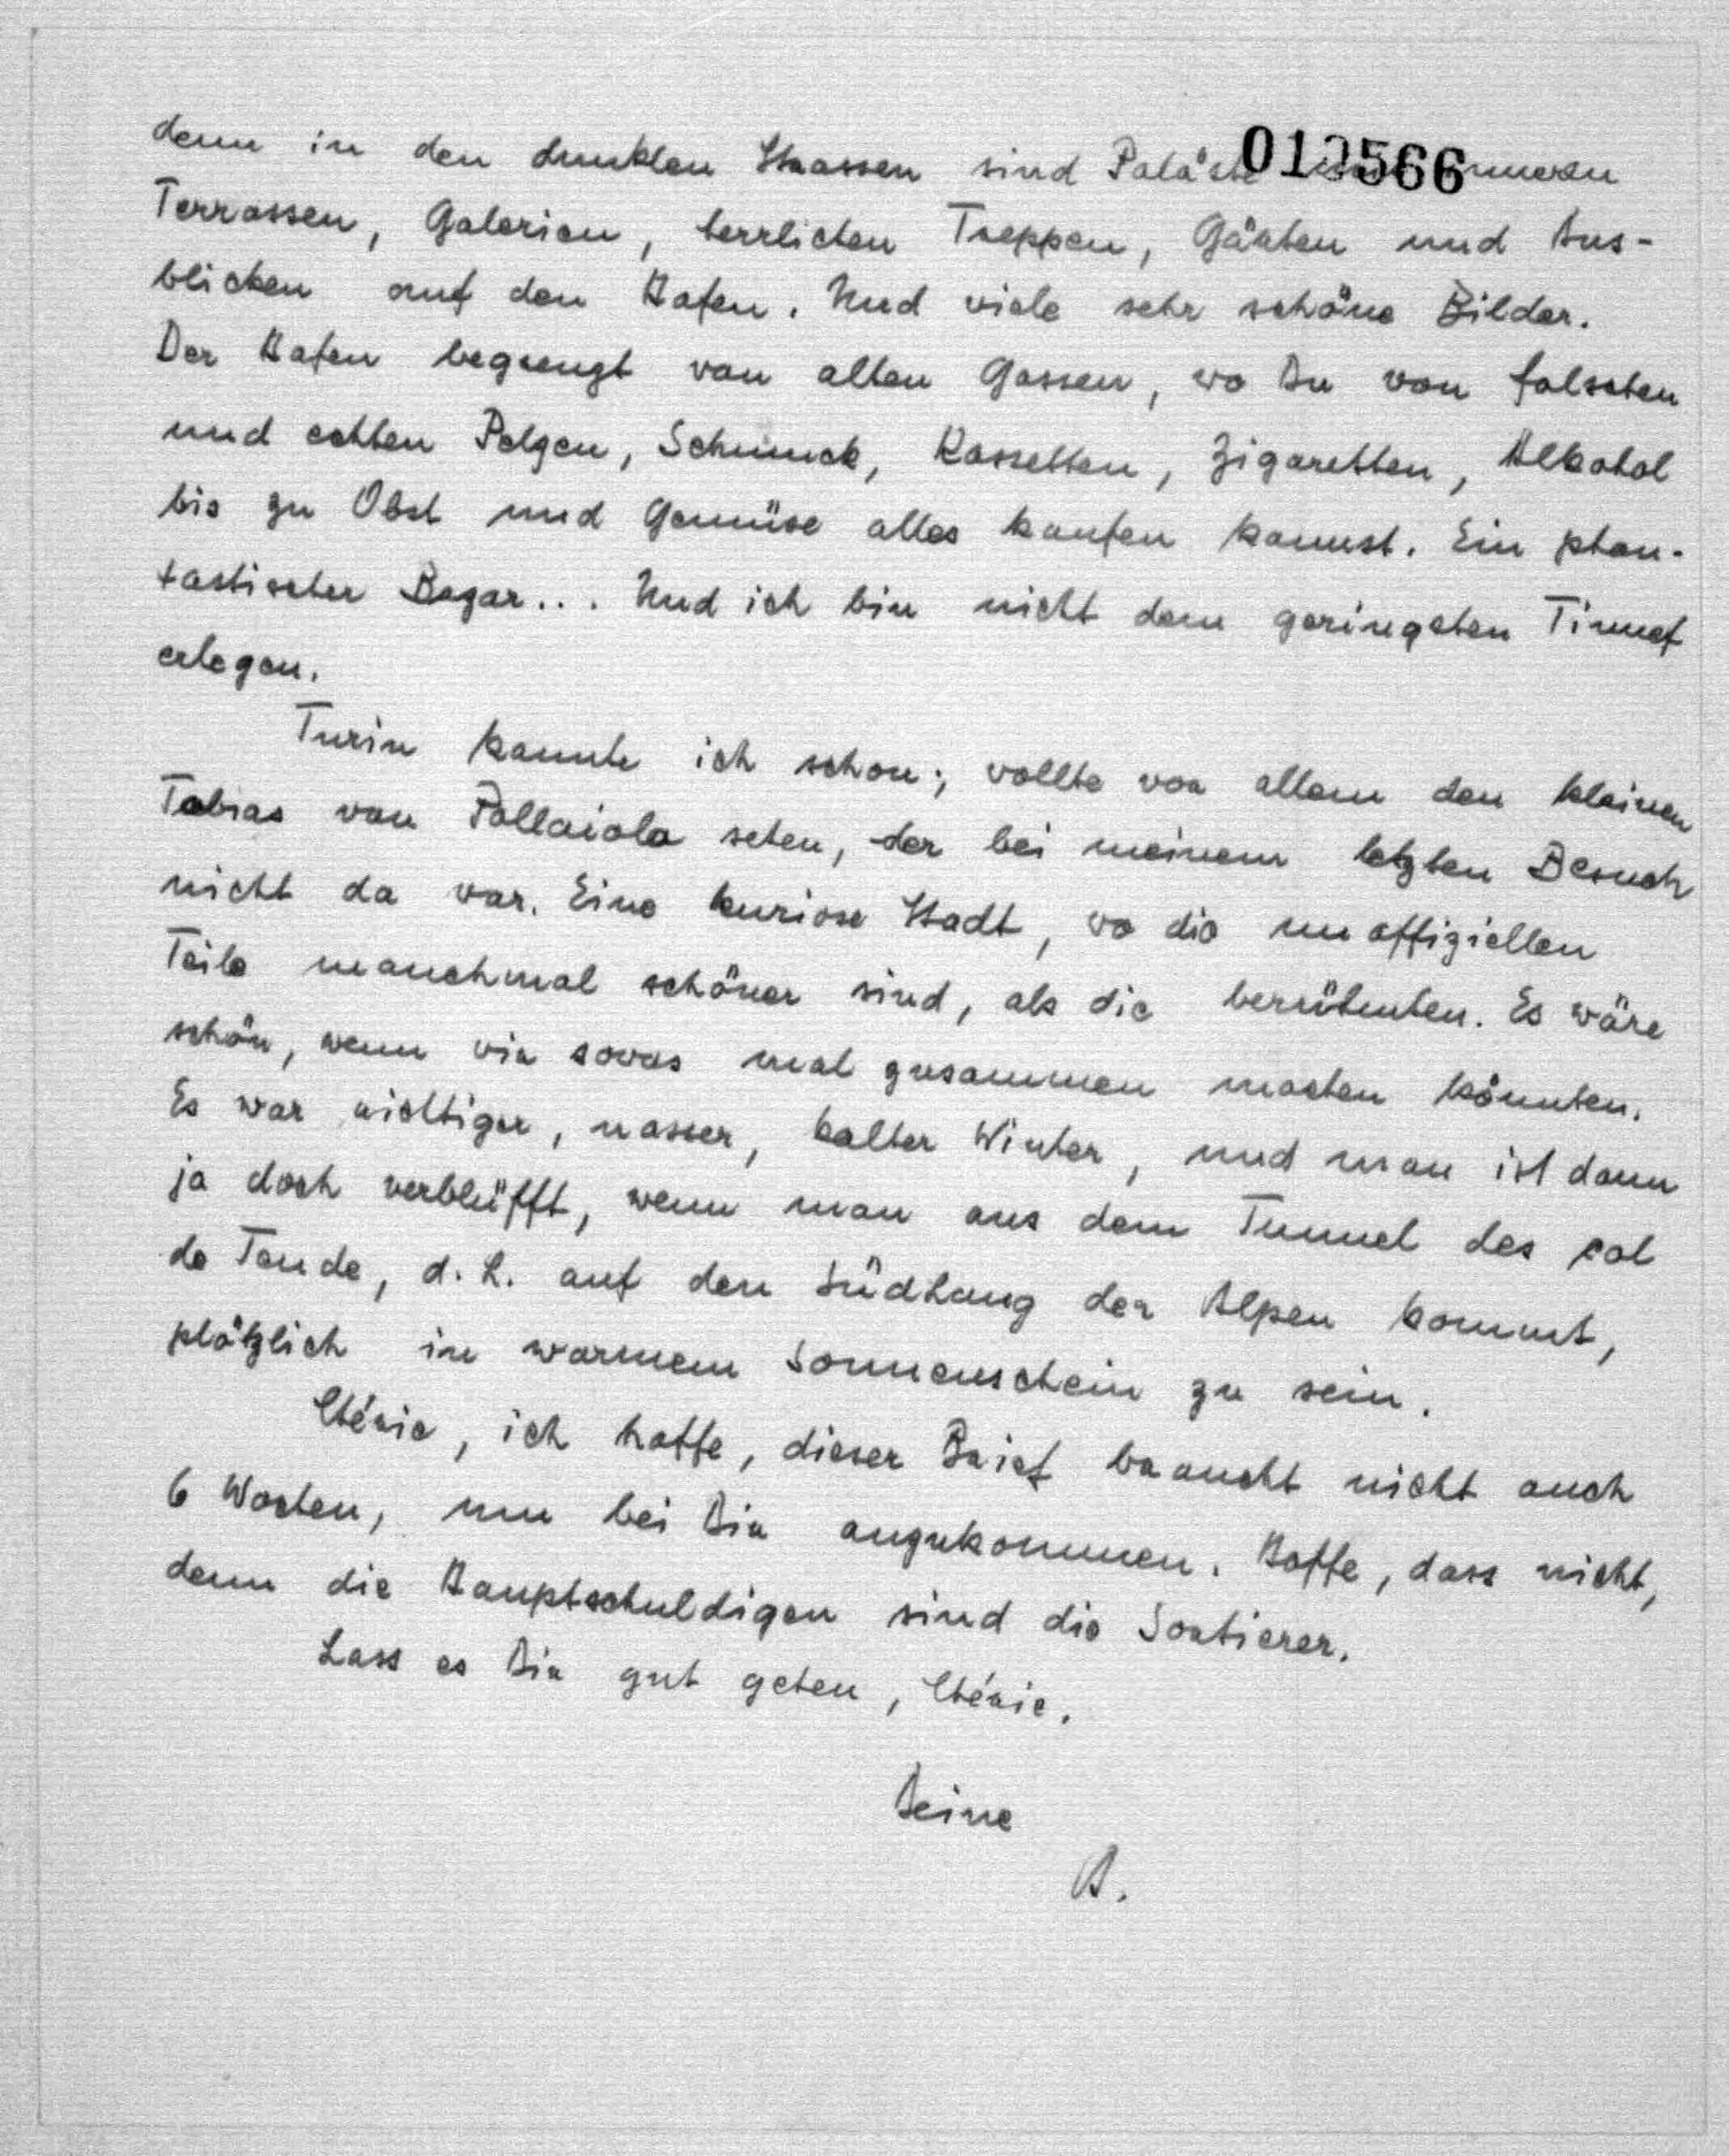 denn in den dunklen Strassen sind Paläste 012566 inneren
Terrassen, Galerien, herrlichen Treppen, Gärten und Aus-
blicken auf den Hafen. Und viele sehr schöne Bilder.
Der Hafen begrenzt von alten Gassen, wo Du von falschen
und echten Pelzen, Schmuck, Kassetten, Zigaretten, Alkohol
bis zu Obst und Gemüse alles kaufen kannst. Ein phan-
tastischer Bazar... Und ich bin nicht dem geringsten Tinnef
erlegen.
Turin kannte ich schon; wollte vor allem den kleinen
Tobias von Pollaiolo sehen, der bei meinem letzten Besuch
nicht da war. Eine kuriose Stadt, wo die unoffiziellen
Teile manchmal schöner sind, als die berühmten. Es wäre
schön, wenn wir sowas mal zusammen machen könnten.
Es war richtiger, nasser, kalter Winter, und man ist dann
ja doch verblüfft, wenn man aus dem Tunnel des col
de Tende, d.h. auf den Südhang der Alpen kommt,
plötzlich in warmem Sonnenschein zu sein.
Chérie, ich hoffe, dieser Brief braucht nicht auch
6 Wochen, um bei Dir anzukommen. Hoffe, dass nicht,
denn die Hauptschuldigen sind die Sortierer.
Lass es Dir gut gehen, Chérie.
Deine
A.